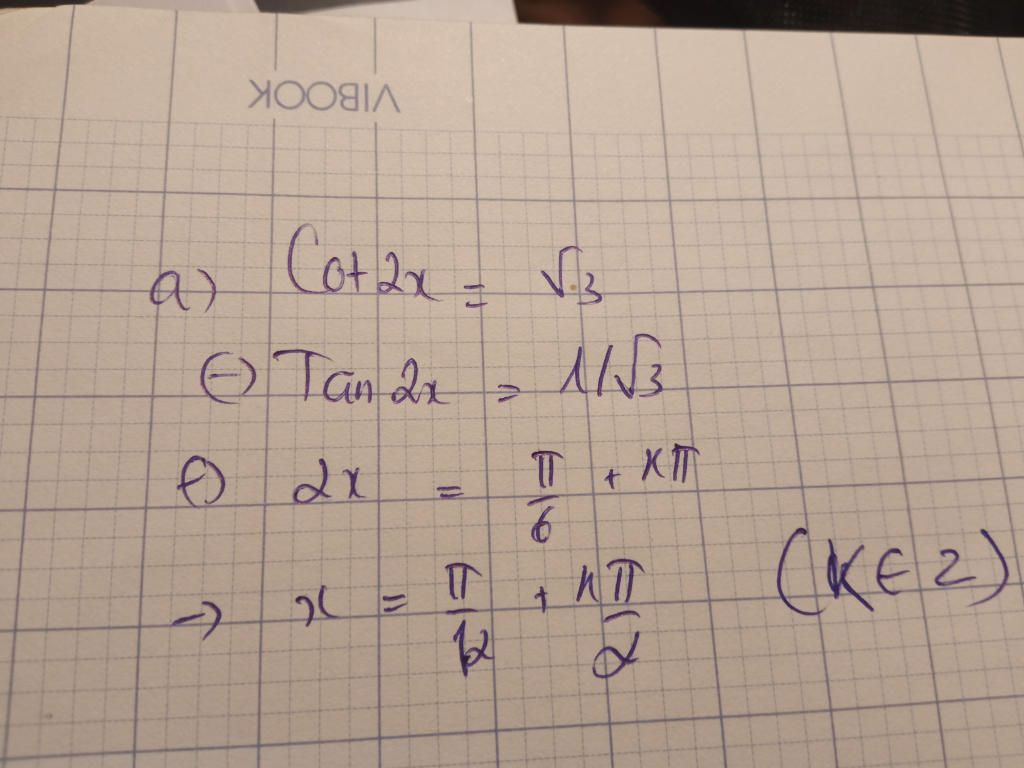 VIBOOK
a) Cot 2x = √3
⇔ Tan 2x = 1/√3
⇔ 2x = π/6 + kπ
→ x = π/12 + kπ/2 (k ∈ Z)